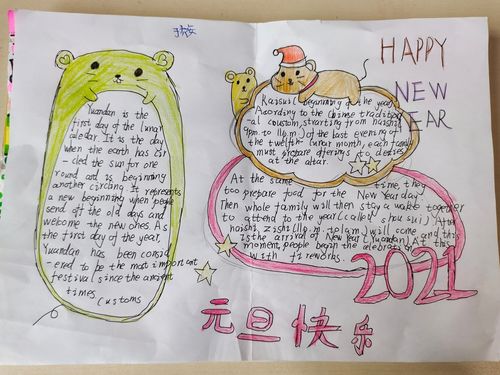 Yuandan is the
first day of the lunar
caledar. It is the day
when the earth has cir
-cled the sun for one
round and is beginning
another circling. It represents
a new beginning when people
send off the old days and
welcome the new ones. As
the first day of the year,
Yuandan has been consid
-ered to be the most important
festival since the ancient
times.
Customs
HAPPY
NEW
EAR
Raisui( beginning of the year)
According to the Chinese tradition
-al coustom, starting from haishi(
9pm. to 11p.m.) of the last evening of
the twelfth lunar month, each family
must prepare offerings to deities
at the altar.
At the same time, they
too prepare food for the New Year day
Then whole family will then stay awake together
to attend to the year (called shou sui). After
haishi, zishi (11p.m. to 1am) will come and this
is the arrival of New Year (Yuandan). At this
moment, people begin the celebration
with fireworks.
2021
元旦快乐